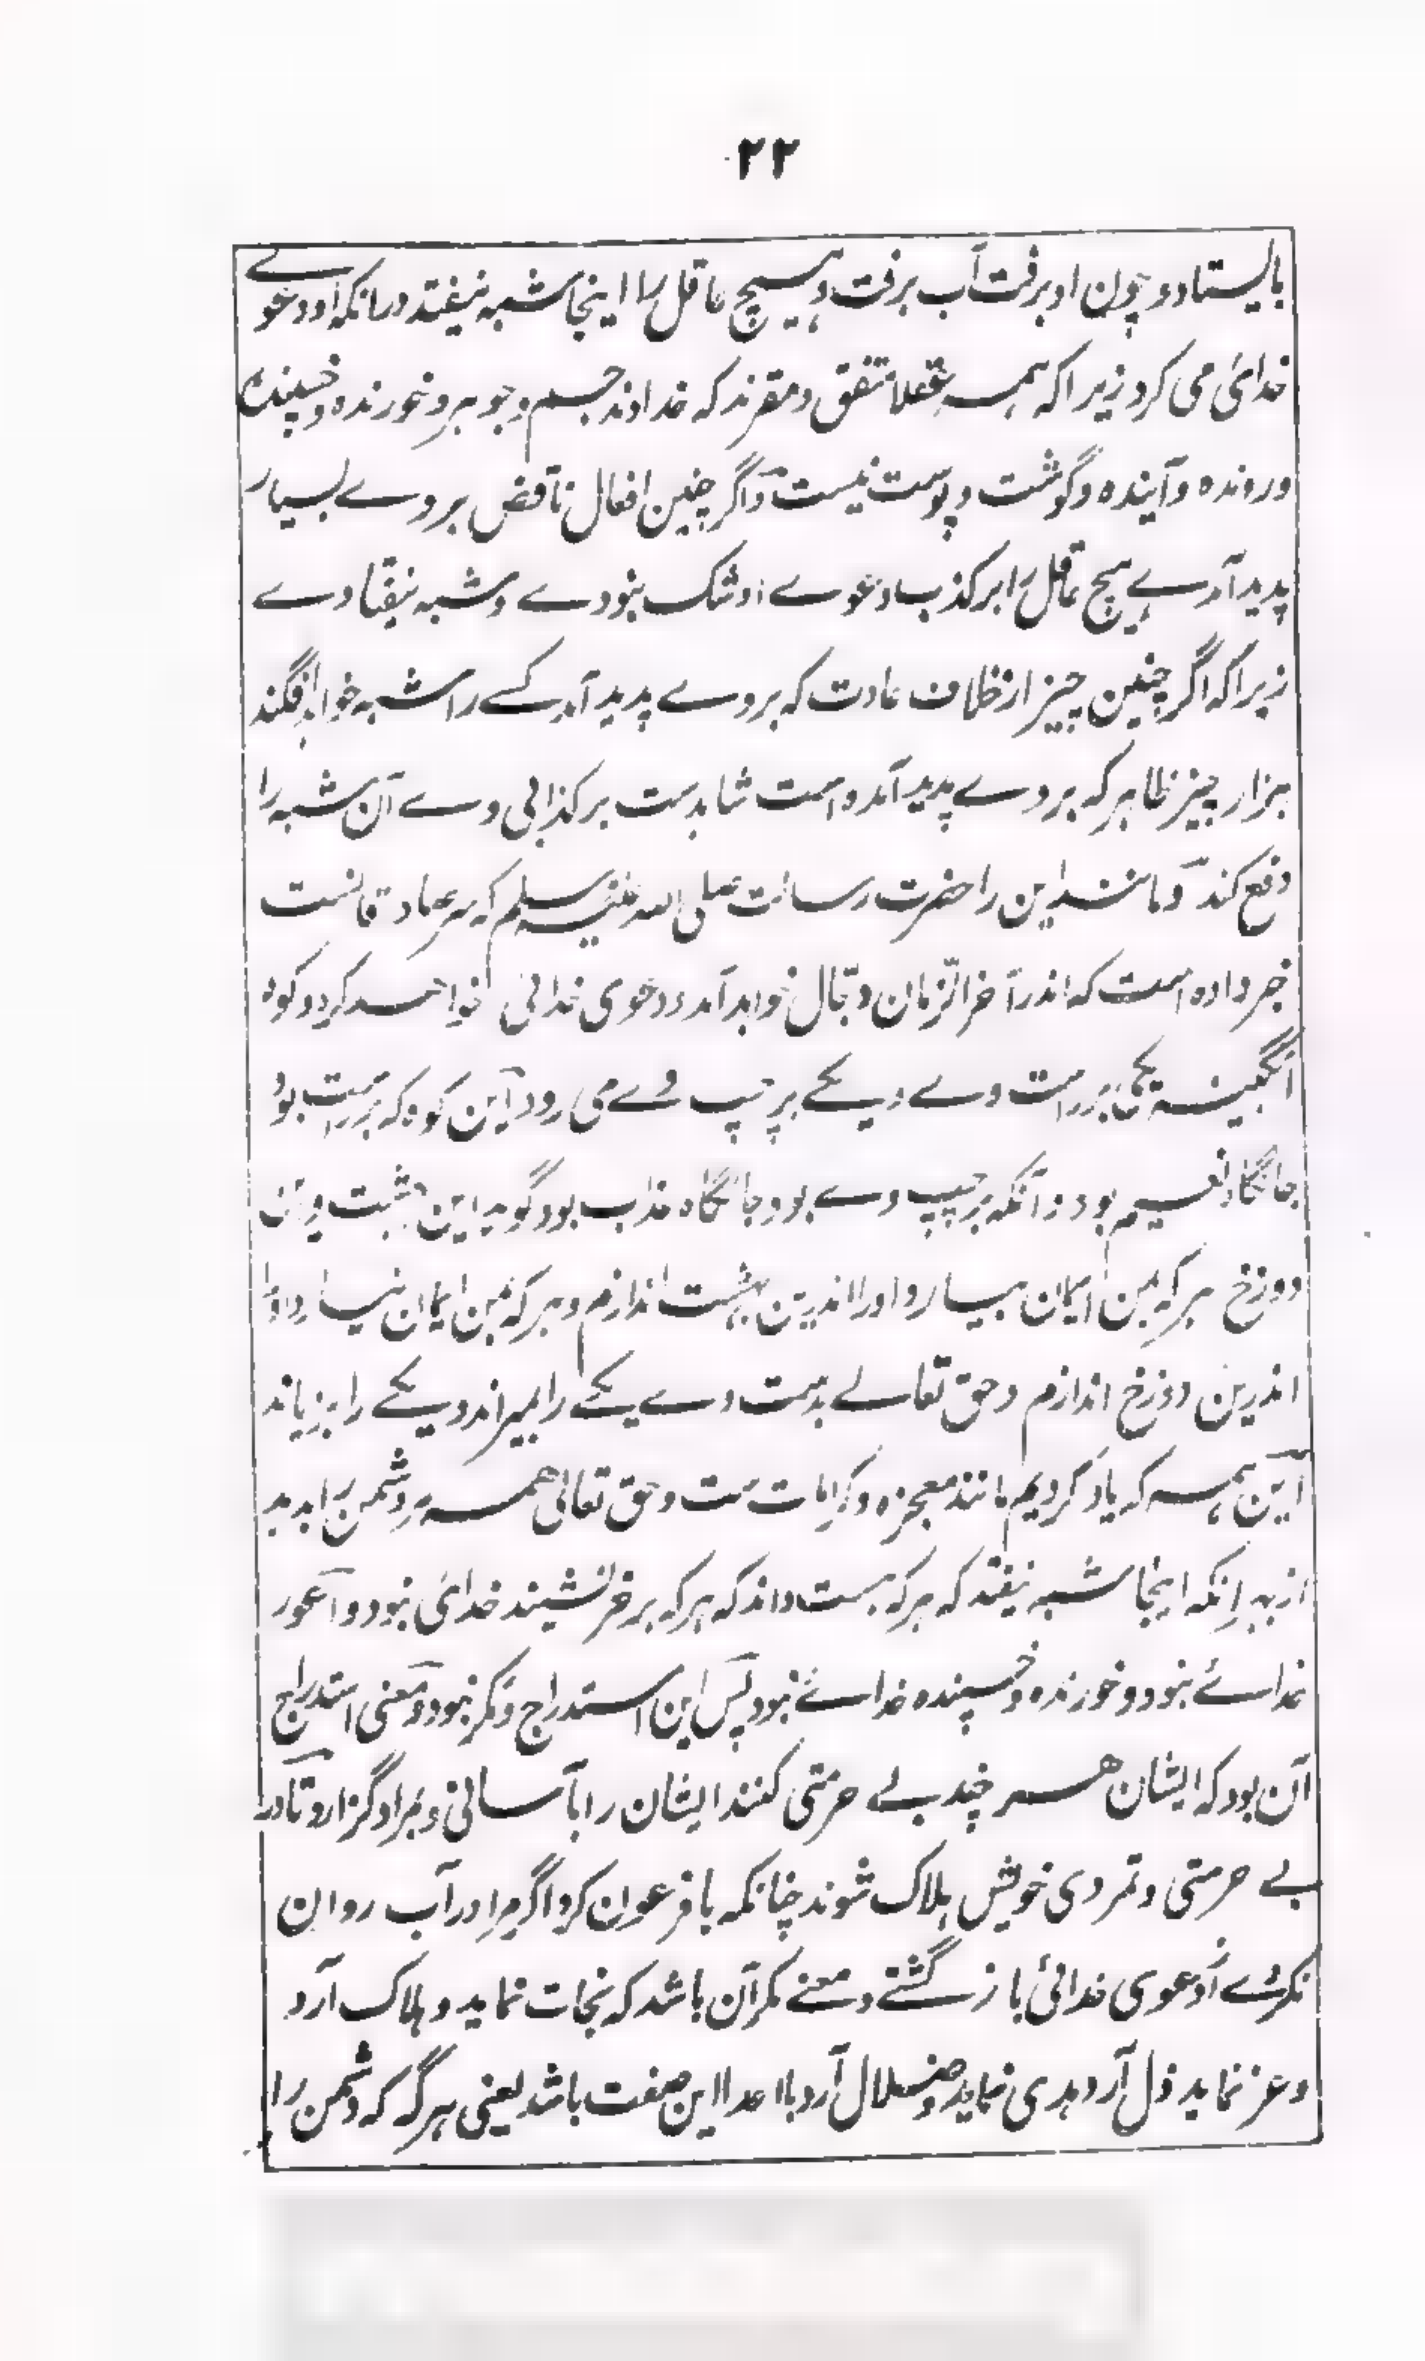 ۲۲
بایستاد و چون او برفت آب برفت و هیچ عاقل را اینجا شبه نیفتد درانکه او دعوے
خدائ می کرد زیراکه همه عقلا متفق و مقرند که خداوند جسم و جوهر و خورنده و خسپنده
و رونده و آینده و گوشت و پوست نیست و اگر چنین افعال ناقض بروے بسیار
پدید آمدے هیچ عاقل را بر کذب دعوے او شک نبودے و شبه نیفتادے
زیراکه اگر چنین چیز از خلاف عادت که بروے پدید آمد کسے را شبه خواهد افگند
هزار چیز ظاهر که بروے پدید آمده است شاهدست بر کذابی وے آن شبه را
دفع کند و مانند این را حضرت رسالت صلی الله علیه وسلم که سر صادقانست
خبر داده است که اندر آخر الزمان دجّال خواهد آمد و دعوی خدائی خواهد کرد و کوه
انگبینه یکے بر راست وے و یکے بر چپ وے می رود این کوه که بر راست بود
جائگاه نعیم بود و آنکه بر چپ وے بود جائگاه عذاب بود گوید این بهشت و این
دوزخ هر که بمن ایمان بیارد او را اندرین بهشت اندازم و هر که بمن ایمان نیارد او را
اندرین دوزخ اندازم و حق تعالے بدست وے یکے را بمیراند و یکے را بزیاند
این همه که یاد کردیم مانند معجزه و کرامات ست و حق تعالی همه دشمن را بدهد
از بهر انکه اینجا شبه نیفتد که هر که هست داند که هر که بر خر نشیند خدائ نبود و اعور
خدائے نبود و خورنده و خسپنده خدائے نبود پس این استدراج و مکر نبود و معنی استدراج
آن بود که ایشان هر چند بے حرمتی کنند ایشان را بآسانی و بمراد گزارد تا در
بے حرمتی و تمردی خویش هلاک شوند چنانکه با فرعون کرد اگر مراد را آب روان
نکردے از دعوی خدائی باز گشتے و معنے مکر آن باشد که نجات نماید و هلاک آرد
و عز نماید ذل آرد هدی نماید و ضلال آرد با اعدا این صفت باشد یعنی هر گه که دشمن را